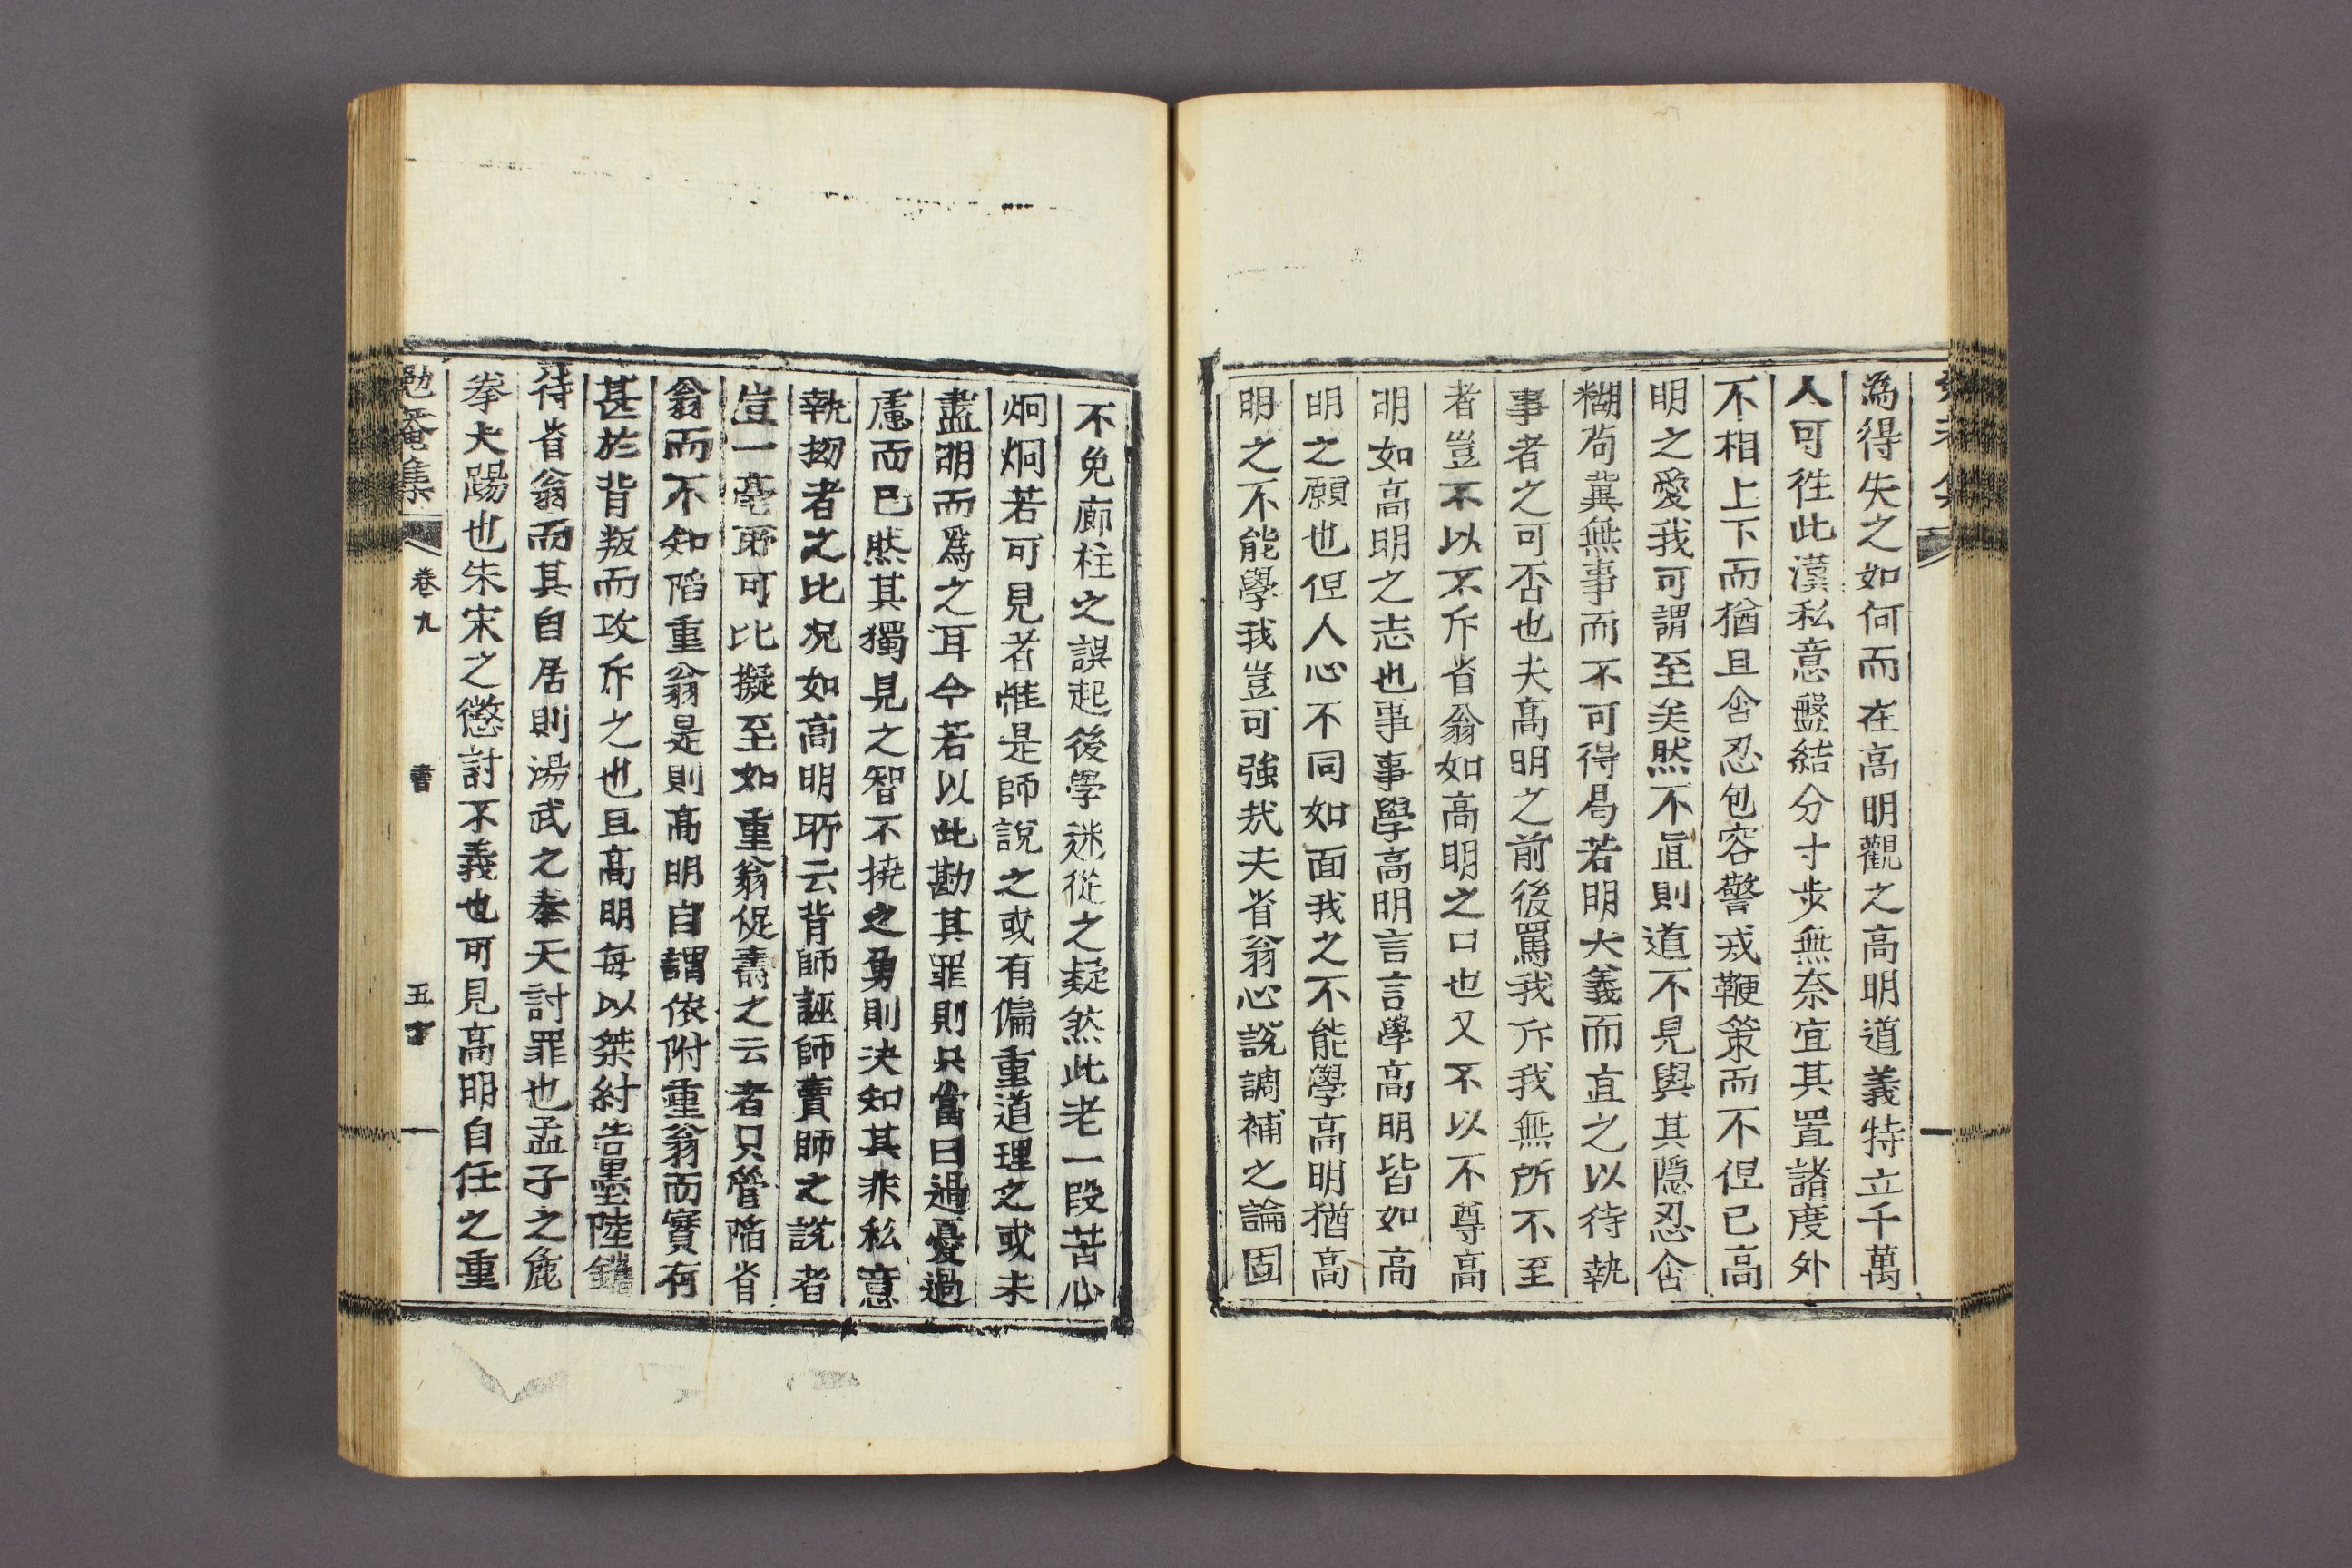 為得失之如何而在高明觀之高明道義特立千萬
人可徃此漢私意盤結分寸步無奈宜其置諸度外
不相上下而猶且含忍包容警戒鞭策而不但已高
明之愛我可謂至矣然不直則道不見與其隱忍含
糊苟冀無事而不可得曷若明大義而直之以待執
事者之可否也夫高明之前後罵我斥我無所不至
者豈不以不斥省翁如高明之口也又不以不尊高
明如高明之志也事事學高明言言學高明皆如高
明之願也但人心不同如面我之不能學高明猶高
明之不能學我豈可強㢤夫省翁心說調補之論固
不免廊柱之誤起後學迷從之疑然此老一段苦心
炯炯若可見者惟是師說之或有偏重道理之或未
盡明而爲之耳今若以此勘其罪則只當曰過憂過
慮而已然其獨見之智不撓之勇則決知其非私意
執拗者之比况如高明所云背師誣師賣師之說者
豈一毫所可比擬至如重翁促壽之云者只管陷省
翁而不知陷重翁是則高明自謂依附重翁而實有
甚於背叛而攻斥之也且高明每以桀紂告墨陸鑴
待省翁而其自居則湯武之奉天討罪也孟子之麁
拳大踢也朱宋之懲討不義也可見高明自任之重
勉菴集 卷九 書 五十